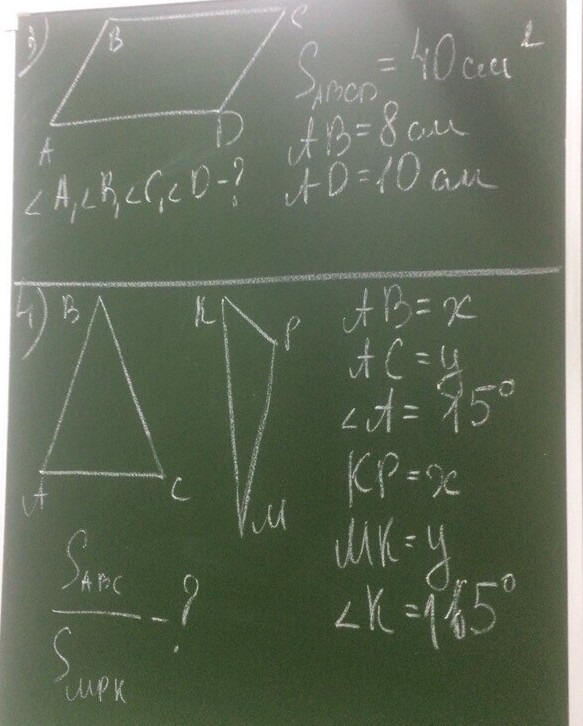 3)
B C
A D
S ABCD = 40 см²
AB = 8 см
AD = 10 см
∠A, ∠B, ∠C, ∠D - ?
4)
B K P
A C M
AB = x
AC = y
∠A = 15°
KP = x
MK = y
∠K = 165°
S ABC
S MPK
- ?